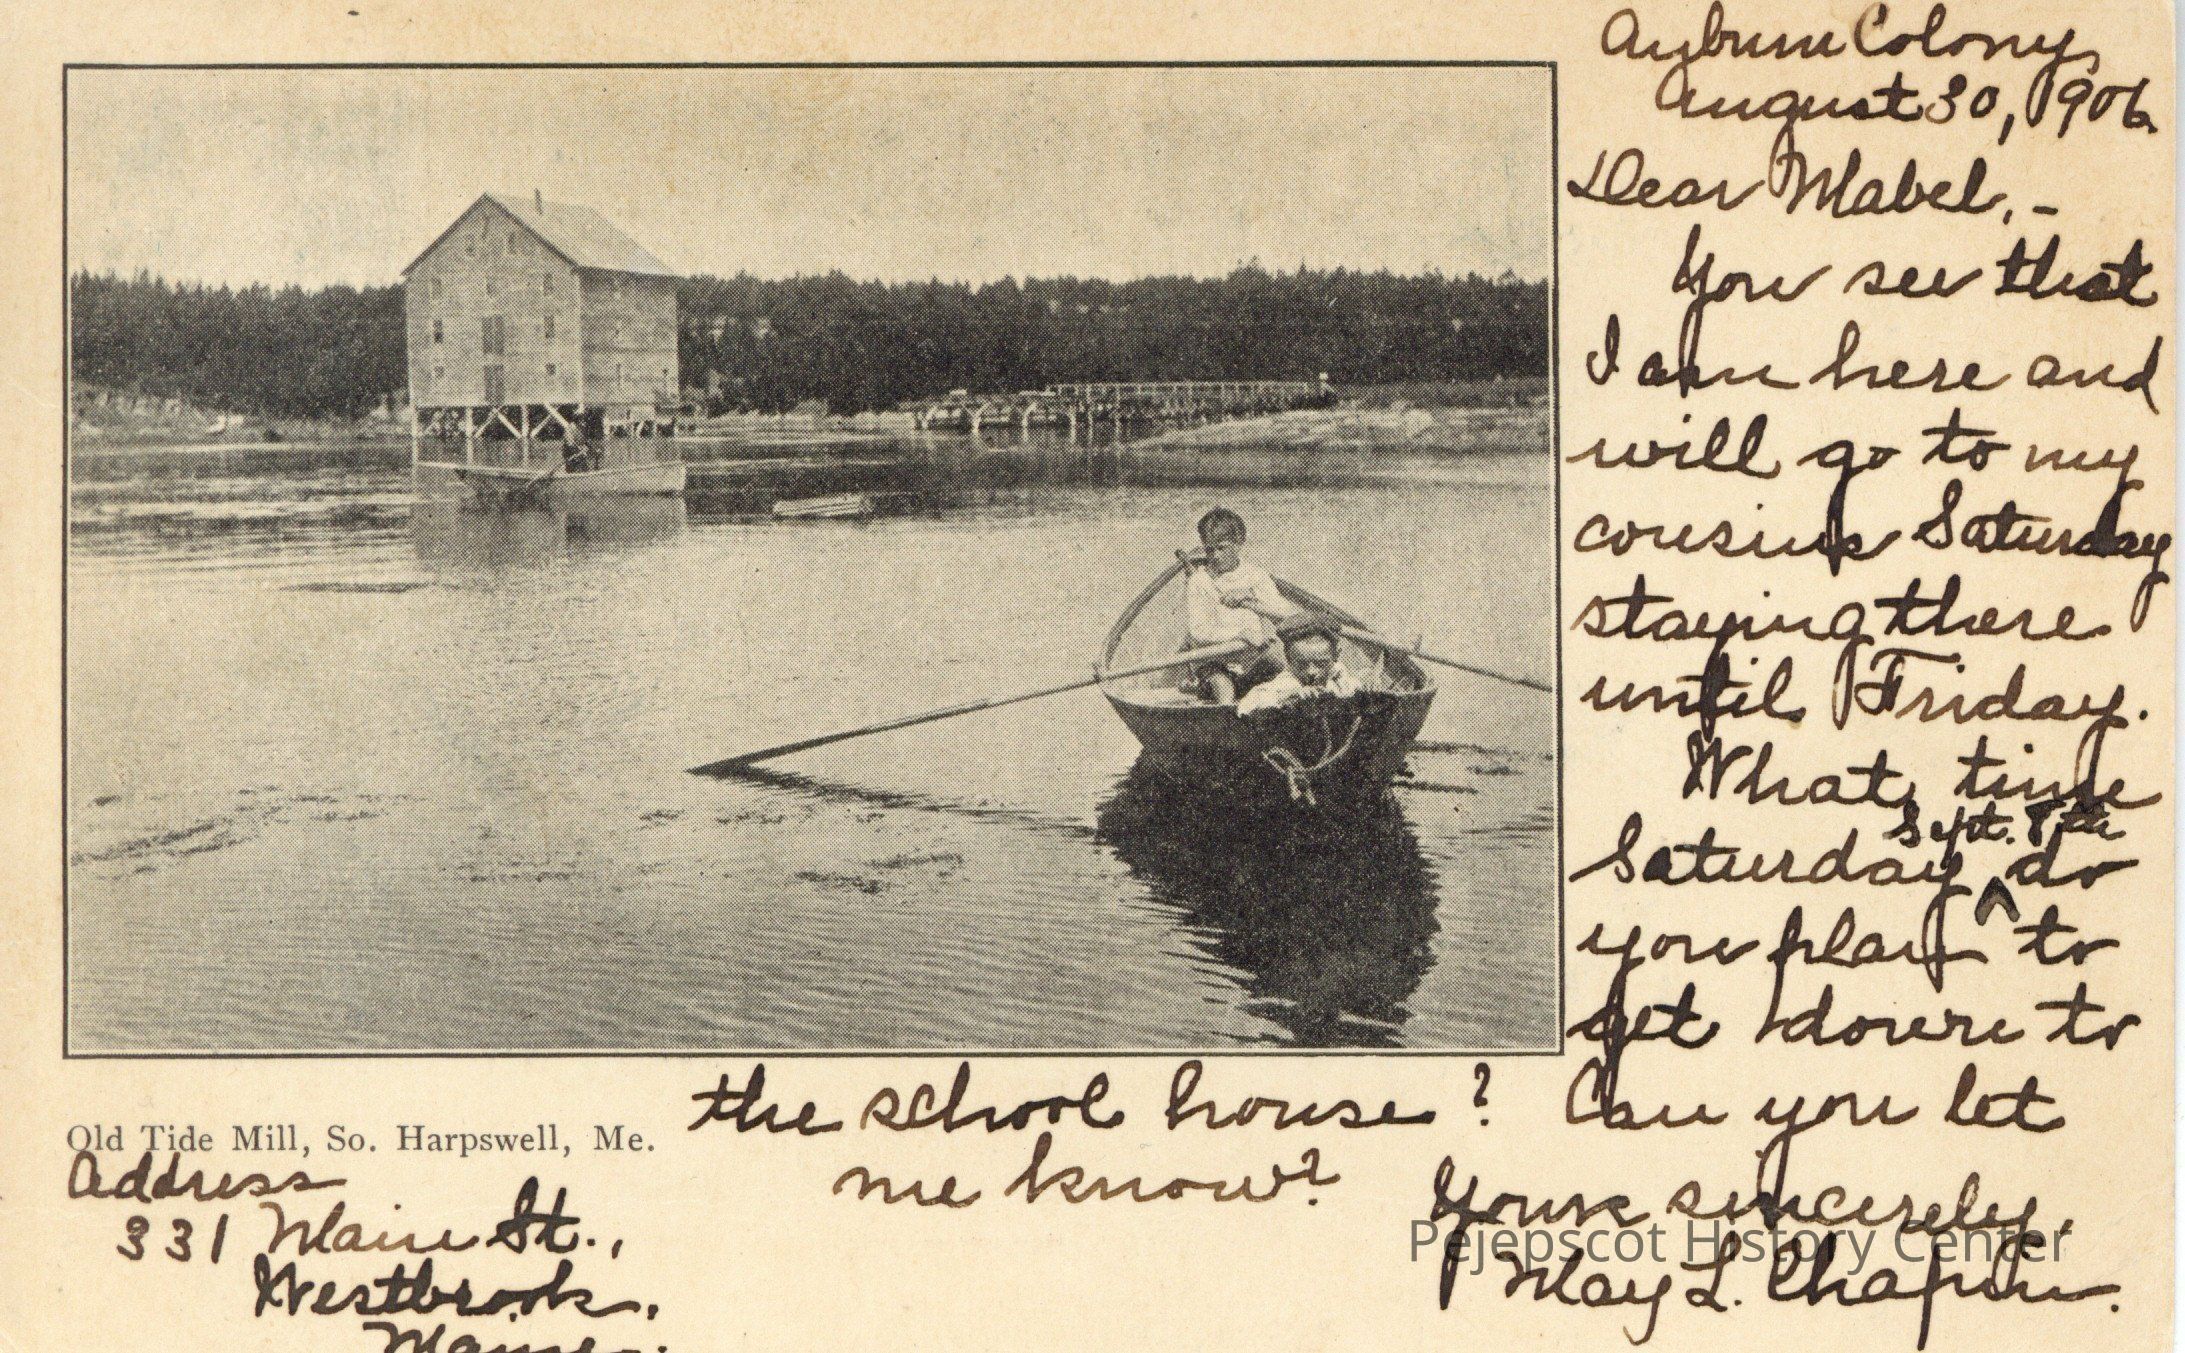 Auburn Colony,
August 30, 1906
Dear Mabel, -
You see that
I am here and
will go to my
cousins Saturday
staying there
until Friday.
What time
Sept. 8th
Saturday ^ do
you plan to
get down to
the school house? Can you let
me know?
Yours sincerely,
May L. Chapin.
Old Tide Mill, So. Harpswell, Me.
Address
331 Main St.,
Westbrook,
Maine.
Pejepscot History Center